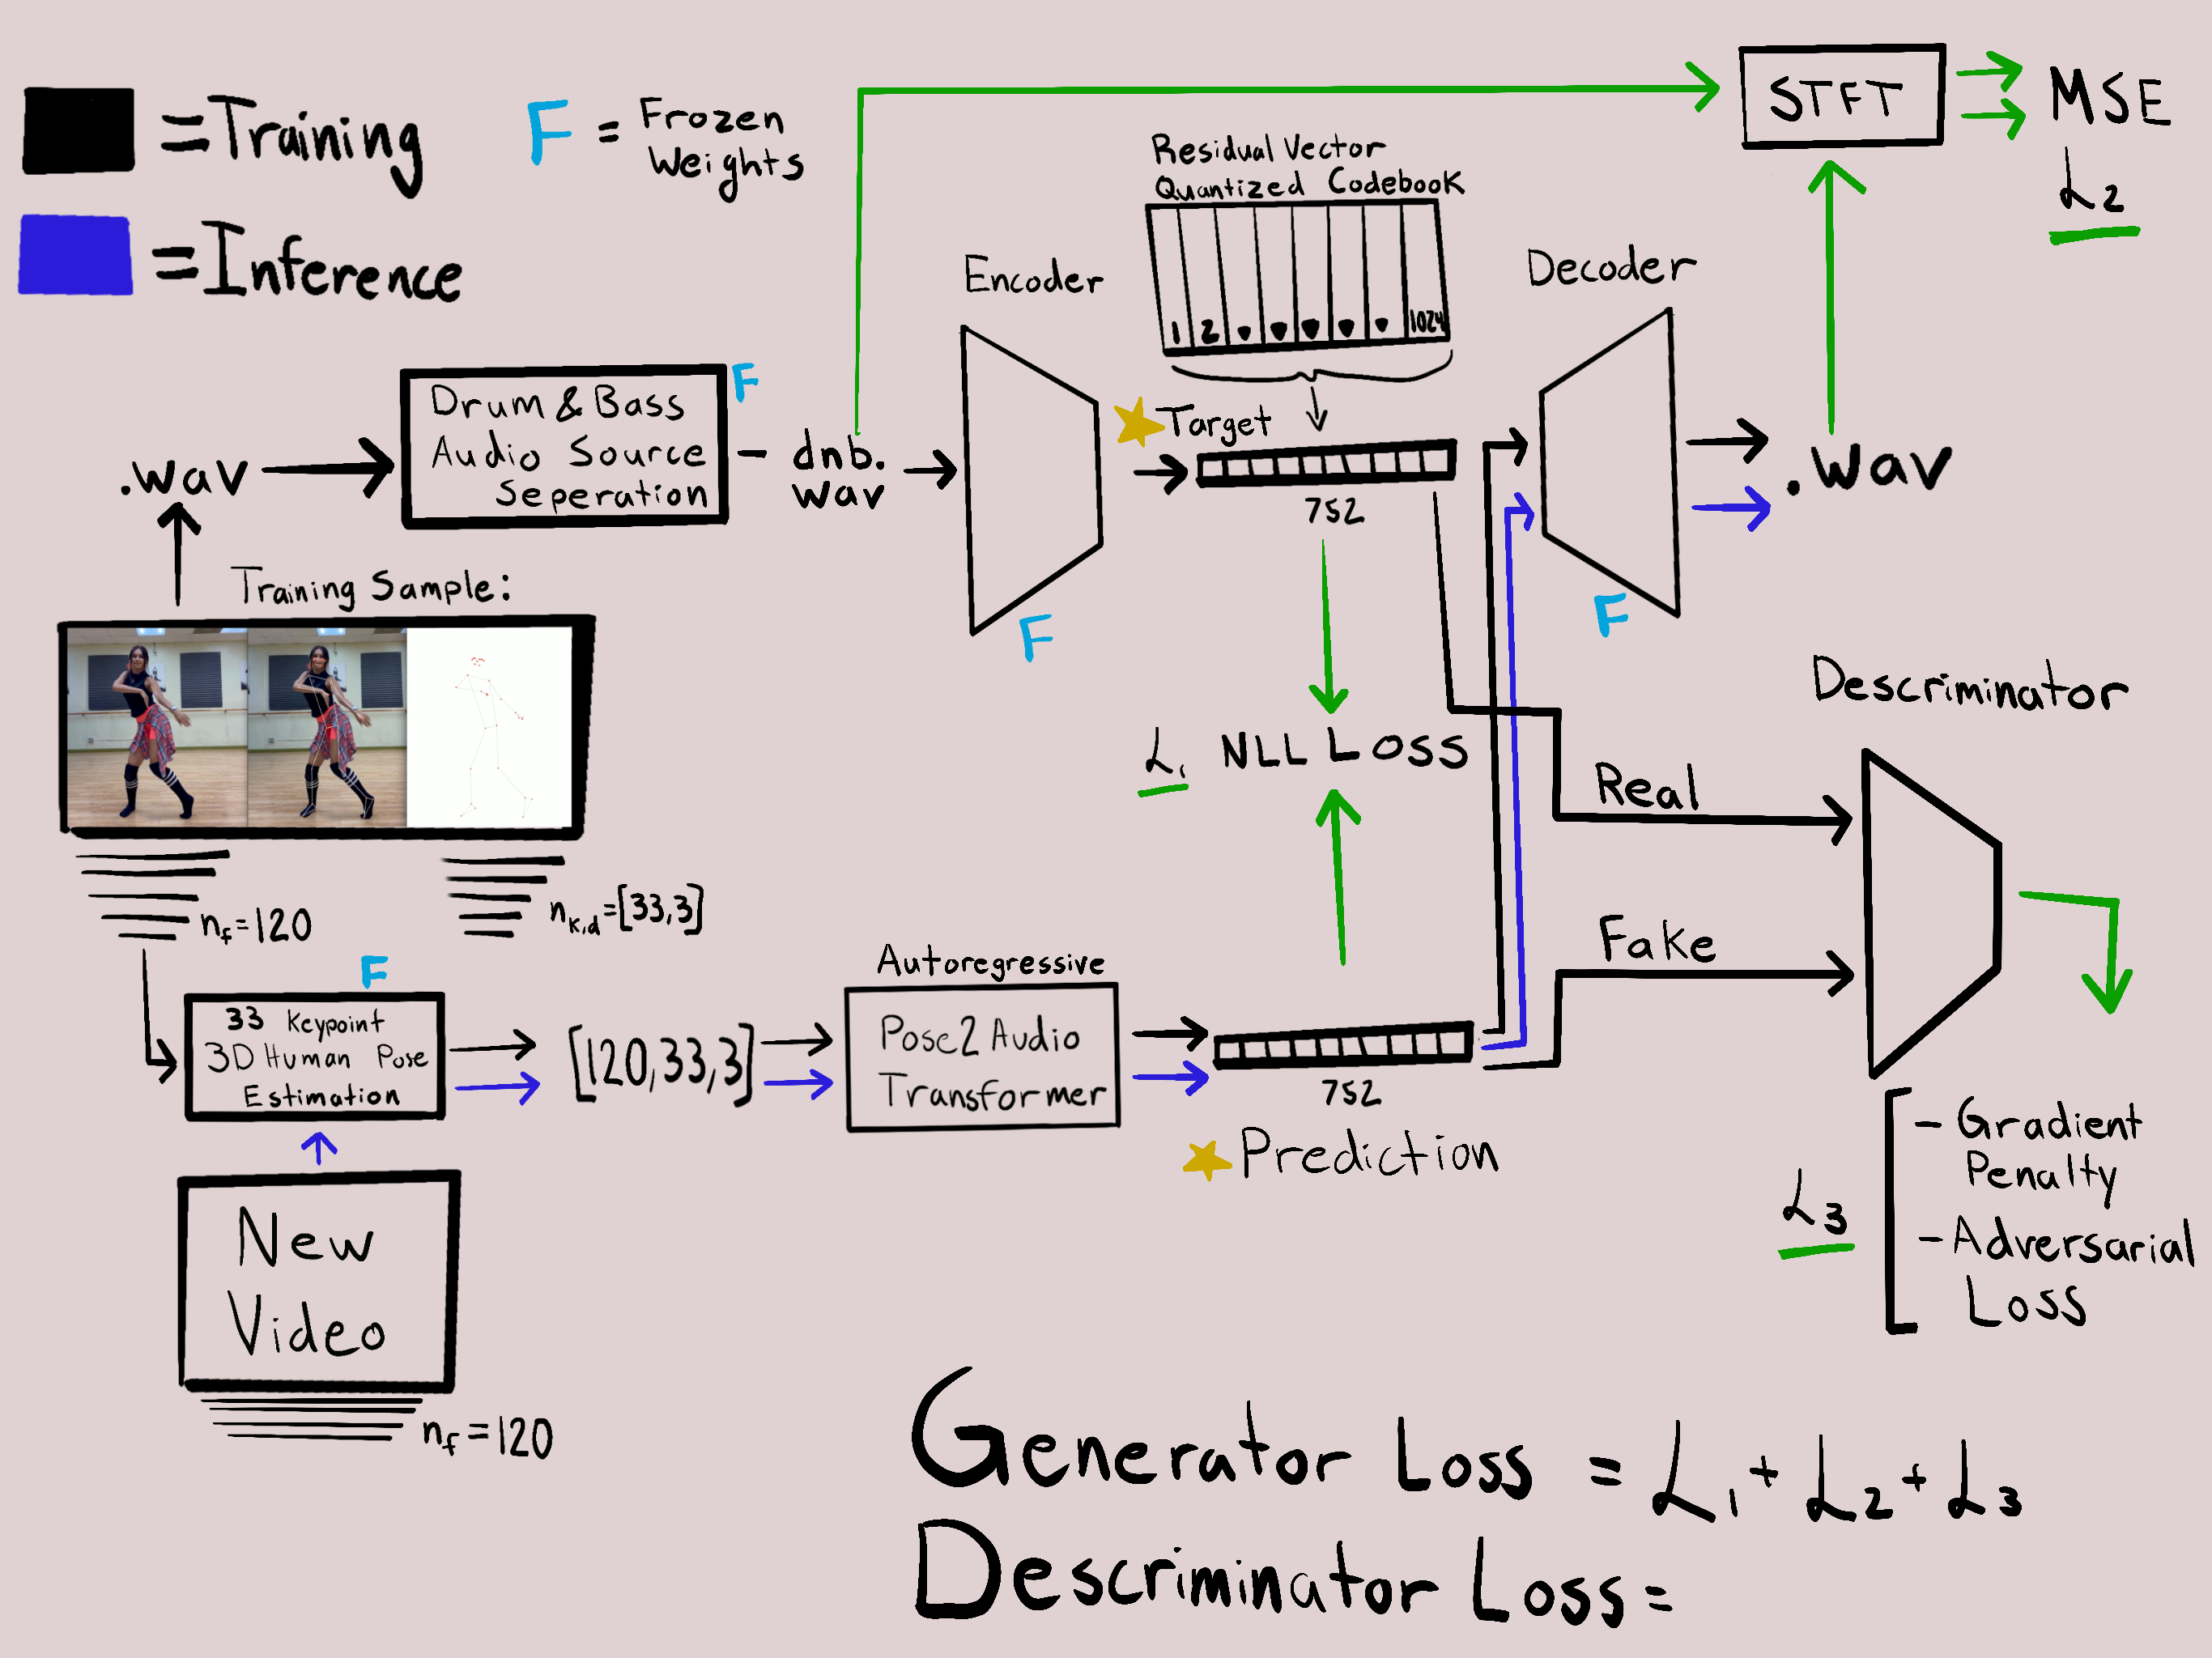 =Training
=Inference
F = Frozen
Weights
STFT
MSE
L2
Residual Vector
Quantized Codebook
1 2 1024
Encoder
Decoder
F
Drum & Bass
Audio Source
Seperation
.wav
dnb.
wav
Target
752
.wav
F
F
Training Sample:
nf=120
nk,d=[33,3]
L1 NLL Loss
Descriminator
Real
Fake
F
33 Keypoint
3D Human Pose
Estimation
[120,33,3]
Autoregressive
Pose2Audio
Transformer
752
Prediction
New
Video
nf=120
L3
- Gradient
Penalty
- Adversarial
Loss
Generator Loss = L1 + L2 + L3
Descriminator Loss =